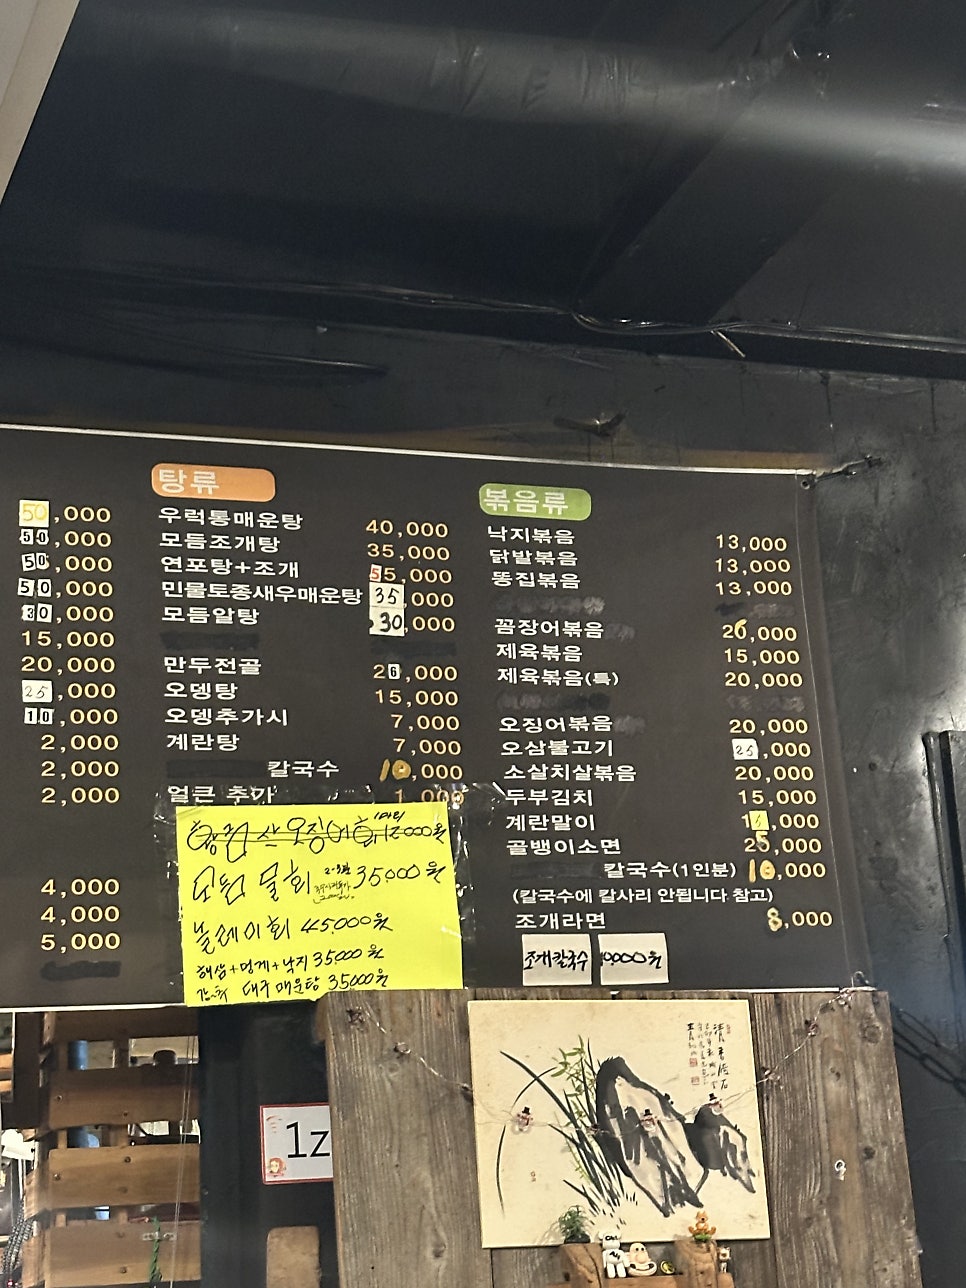 50,000
50,000
50,000
50,000
30,000
15,000
20,000
25,000
10,000
2,000
2,000
2,000
4,000
4,000
5,000
탕류
우럭통매운탕 40,000
모듬조개탕 35,000
연포탕+조개 55,000
민물토종새우매운탕 35,000
모듬알탕 30,000
만두전골 26,000
오뎅탕 15,000
오뎅추가시 7,000
계란탕 7,000
칼국수 10,000
얼큰 추가 1,000
모듬 물회 35000원
블레이회 45000원
해삼+멍게+낙지 35000원
대구 매운탕 35000원
볶음류
낙지볶음 13,000
닭발볶음 13,000
똥집볶음 13,000
꼼장어볶음 26,000
제육볶음 15,000
제육볶음(특) 20,000
오징어볶음 20,000
오삼불고기 25,000
소살치살볶음 20,000
두부김치 15,000
계란말이
골뱅이소면 25,000
칼국수(1인분) 10,000
(칼국수에 칼사리 안됩니다 참고)
조개라면 8,000
조개칼국수 10000원
1z